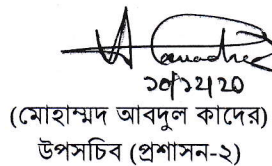 ১০/১২/২০
(মোহাম্মদ আবদুল কাদের)
উপসচিব (প্রশাসন-২)